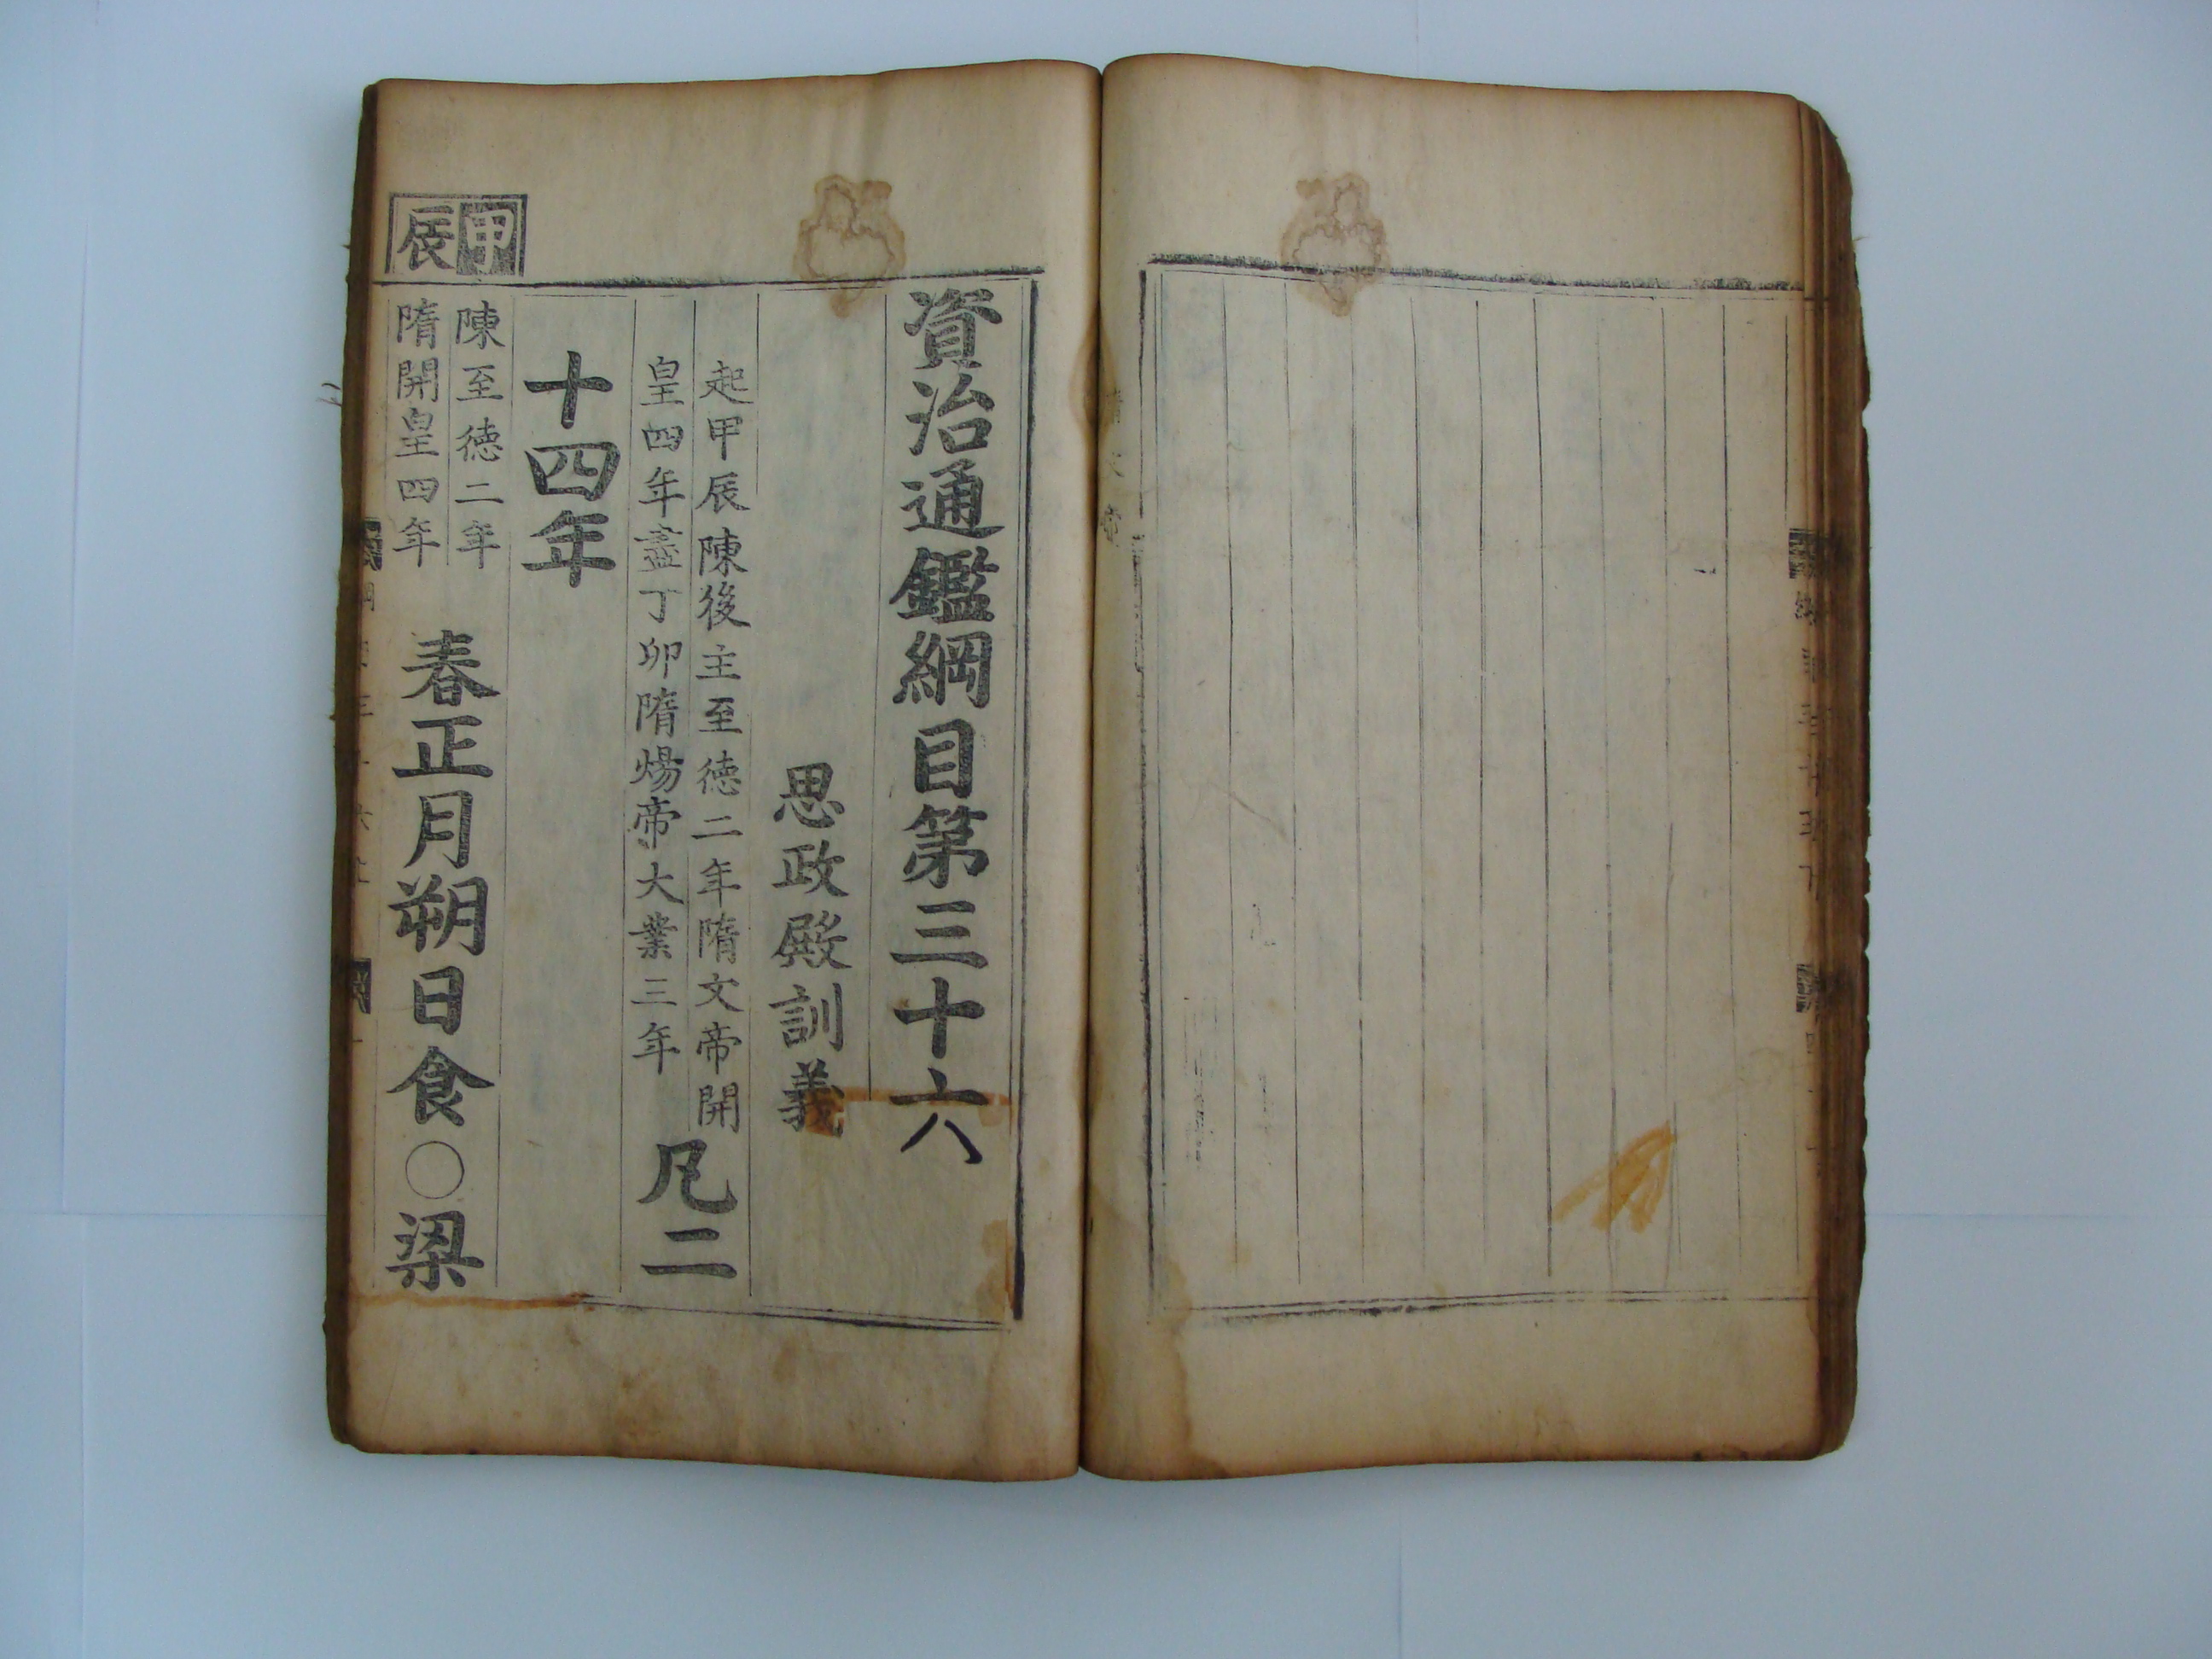 資治通鑑綱目第三十六
思政殿訓義
起甲辰陳後主至德二年隋文帝開
皇四年盡丁卯隋煬帝大業三年
凡二
十四年
甲辰
陳至德二年
隋開皇四年
春正月朔日食○梁